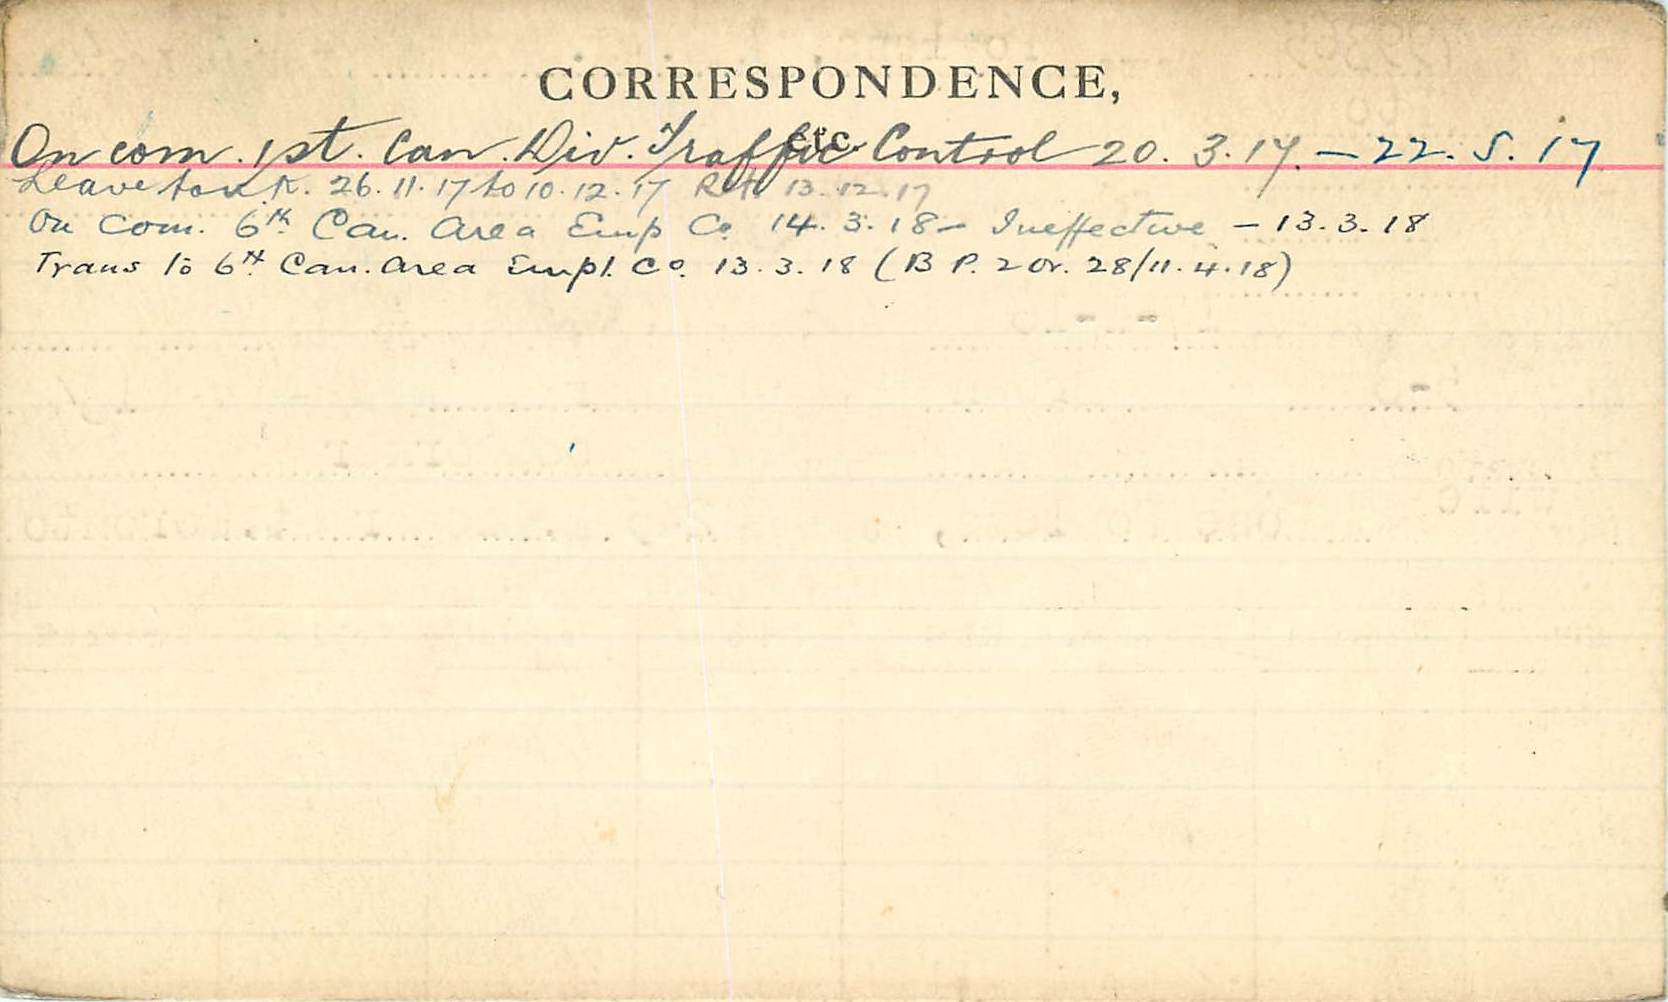 CORRESPONDENCE,
etc.
On com. 1st. Can. Div. Traffic Control 20. 3. 17. - 22. 5. 17
Leave to U.K. 26.11.17 to 10.12.17 Ret. 13.12.17
On Com. 6th Can. Area Emp Co. 14.3.18 - Ineffective - 13.3.18
Trans to 6th Can. Area Empl. Co. 13.3.18 (B P. 2 Or. 28/11.4.18)